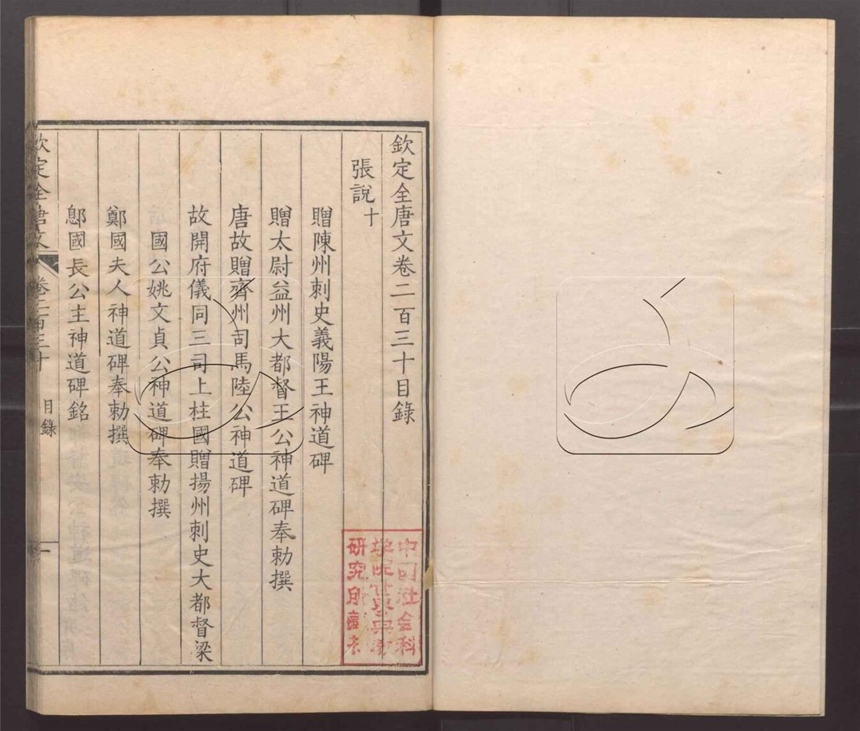 欽定全唐文卷二百三十目錄
張說十
贈陳州刺史義陽王神道碑
贈太尉益州大都督王公神道碑奉勅撰
唐故贈齊州司馬陸公神道碑
故開府儀同三司上柱國贈揚州刺史大都督梁
國公姚文貞公神道碑奉勅撰
鄭國夫人神道碑奉勅撰
鄎國長公主神道碑銘
欽定全唐文 卷二百三十 目錄 一
中國社會科
學院
研究所藏